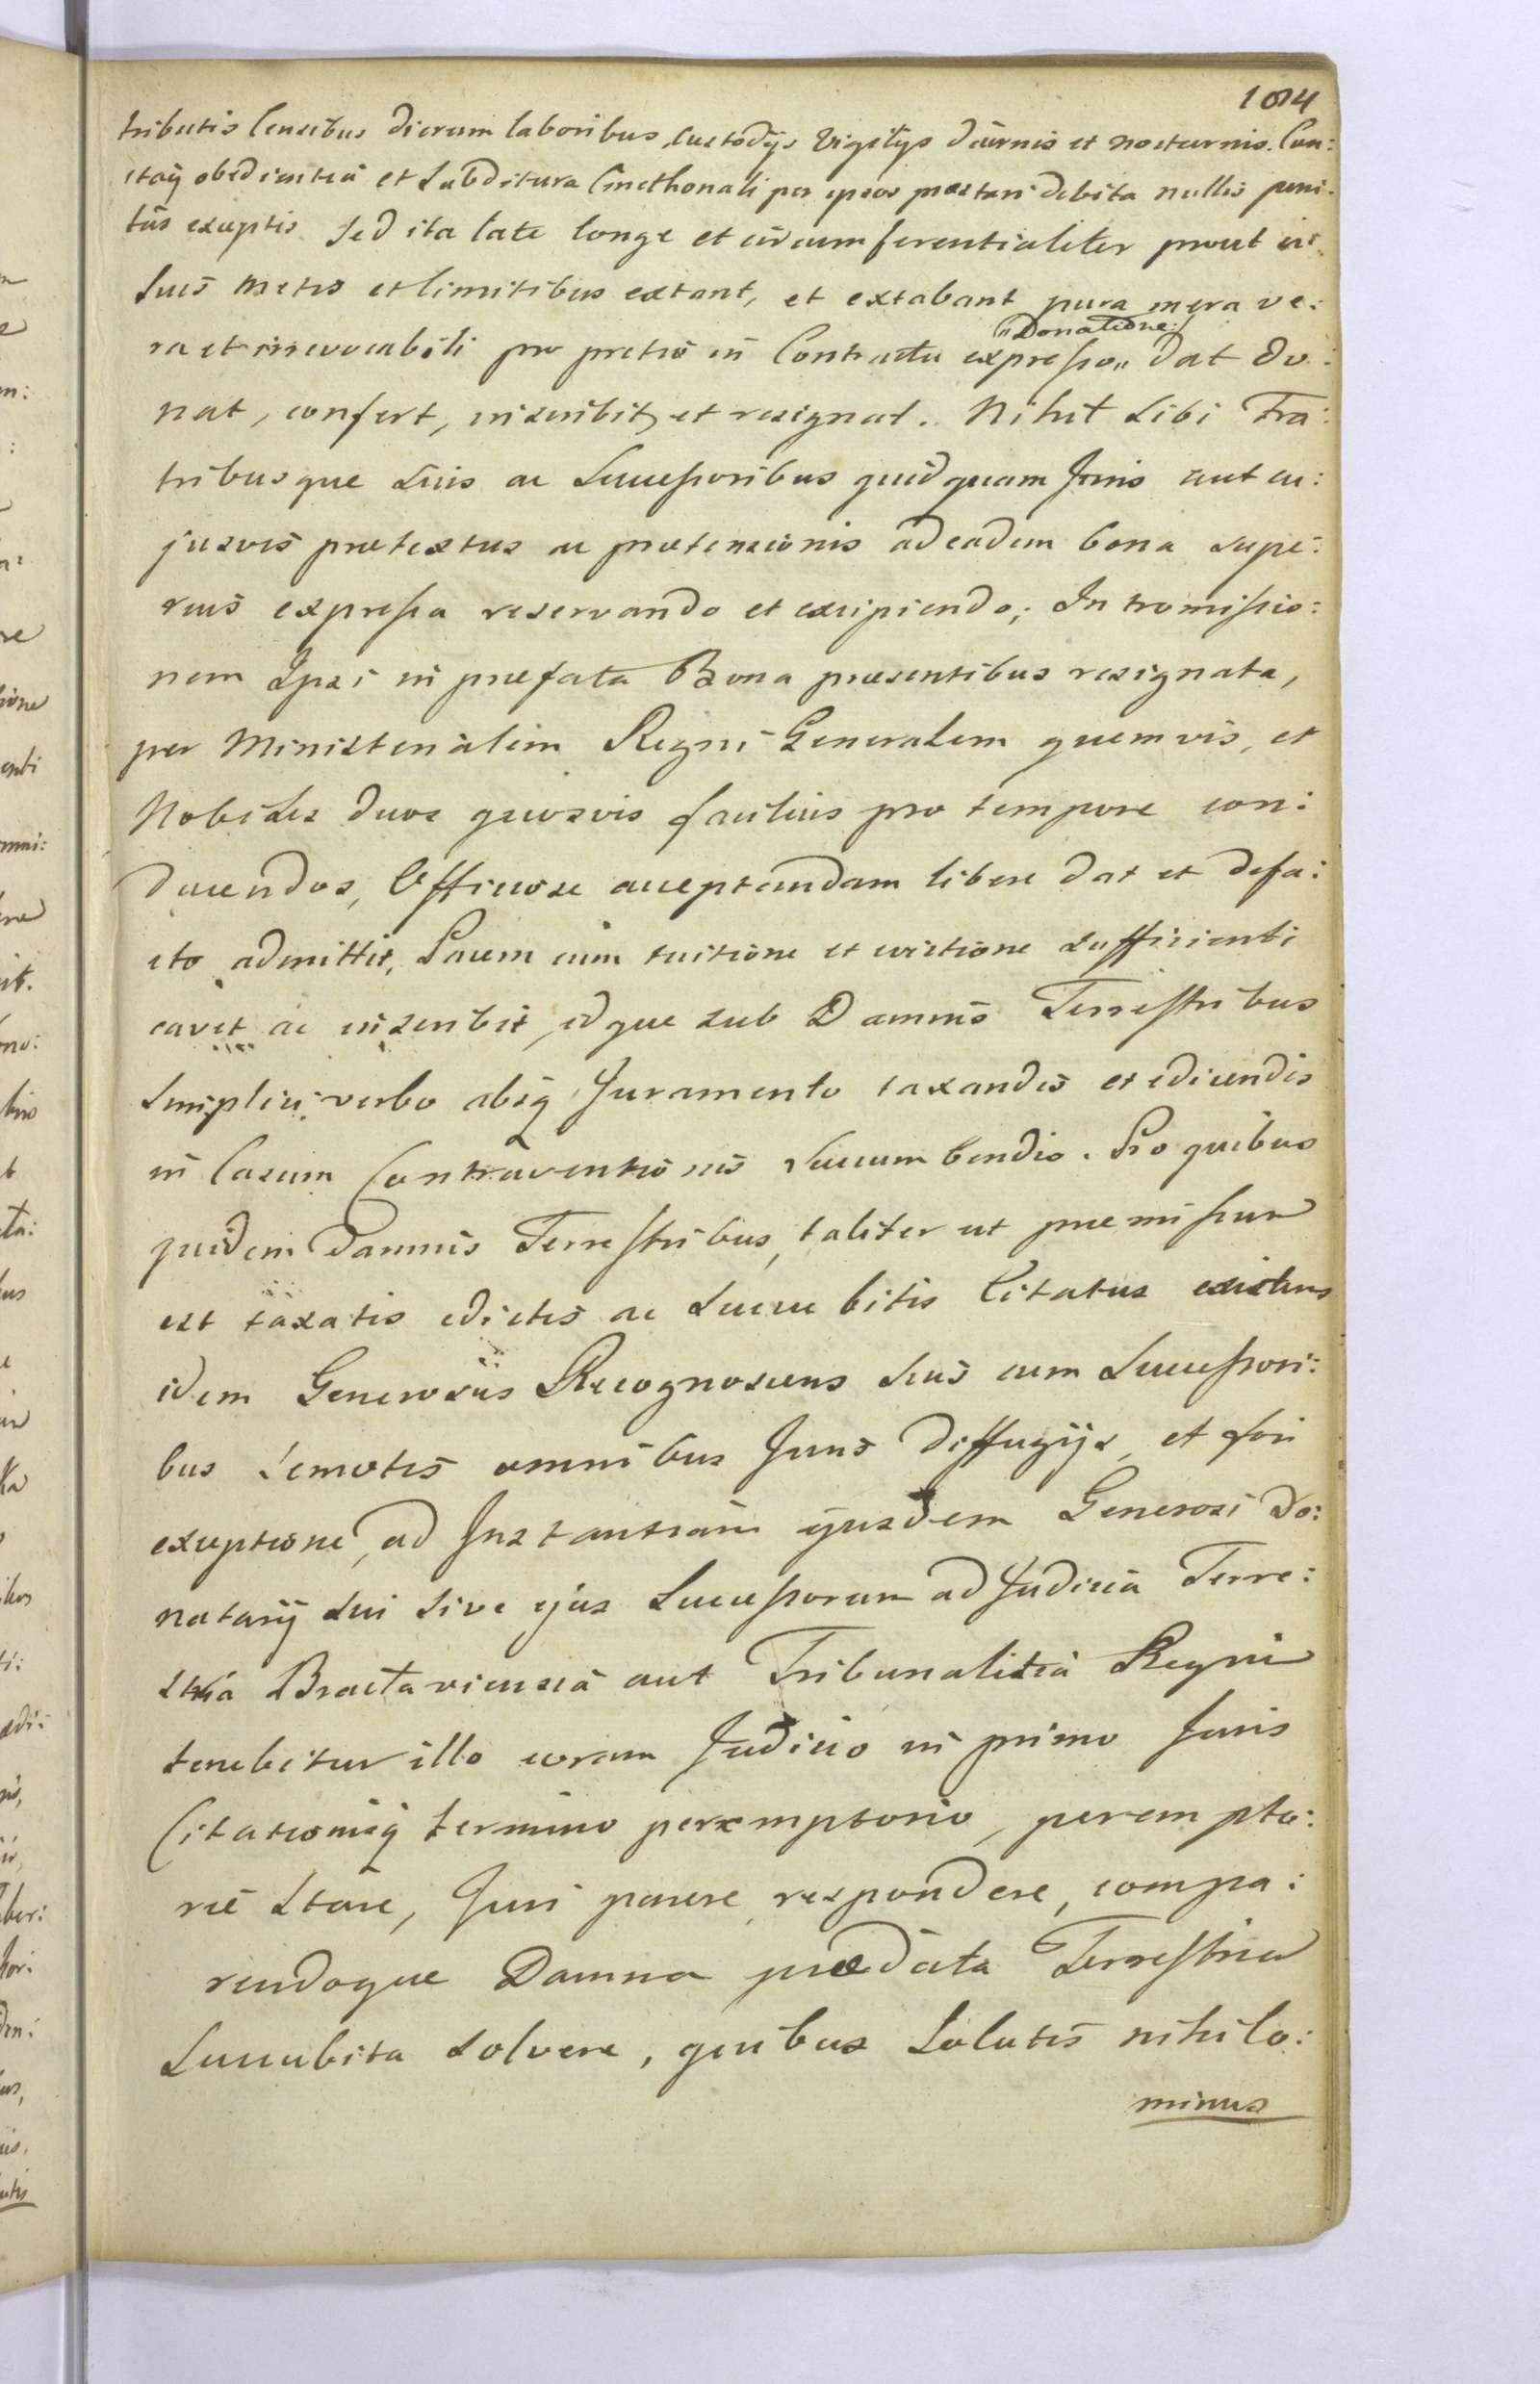 1014
tributis Censibus dierum laboribus, Custodÿs Vigilÿs diurnis et nocturnis. Cun:
ctaq obedientiá et Subditura Cmethonali per ipsos præstari debita nullis peni:
tús exceptis. Sed ita late longe et circumferentialiter prout in
Suis metis et limitibus extant, et extabant pura mera ve:
"Donatione:/
ra et irrevocabili pro pretio in Contractu expresso" dat do:
nat, confert, inscribit, et resignat. Nihil Sibi Fra:
tribusque Suis ac Successoribus quidquam Juris aut cu:
jusvis prætextus ac prætensionis ad eadem bona supe:
rius expressa reservando et excipiendo; Intromissio:
nem Ipsi in præfata Bona præsentibus resignata,
per Ministerialem Regni Generalem quemvis, et
Nobiles duos quosvis facilius pro tempore con:
ducendos, Officiose acceptandam libere dat et defa:
cto admittit, Pacem cum tuitione et evictione sufficienti
cavet ac inscribit, idque sub Damnis Terrestribus
Simplici verbo absq Juramento taxandis et edicendis
in Casum Contraventionis Succumbendis. Pro quibus
quidem Damnis Terrestribus, taliter ut præmissum
est taxatis edictis ac Succubitis Citatus existens
idem Generosus Recognoscens Suis cum Successori:
bus Semotis omnibus Juris diffugÿs, et fori
exceptione, ad Instantiam ejusdem Generosi Do:
natarÿ Sui Sive ejus Successorum ad Judicia Terre:
stria Braclaviensia aut Tribunalitia Regni
tenebitur illo coram Judicio in primo Juris
Citationisq termino peremptorio, perempto:
rié Stare, Juri parere respondere, compa:
rendoque Damna prædicta Terrestria
Succubita solvere, quibus Solutis nihilo:
minus